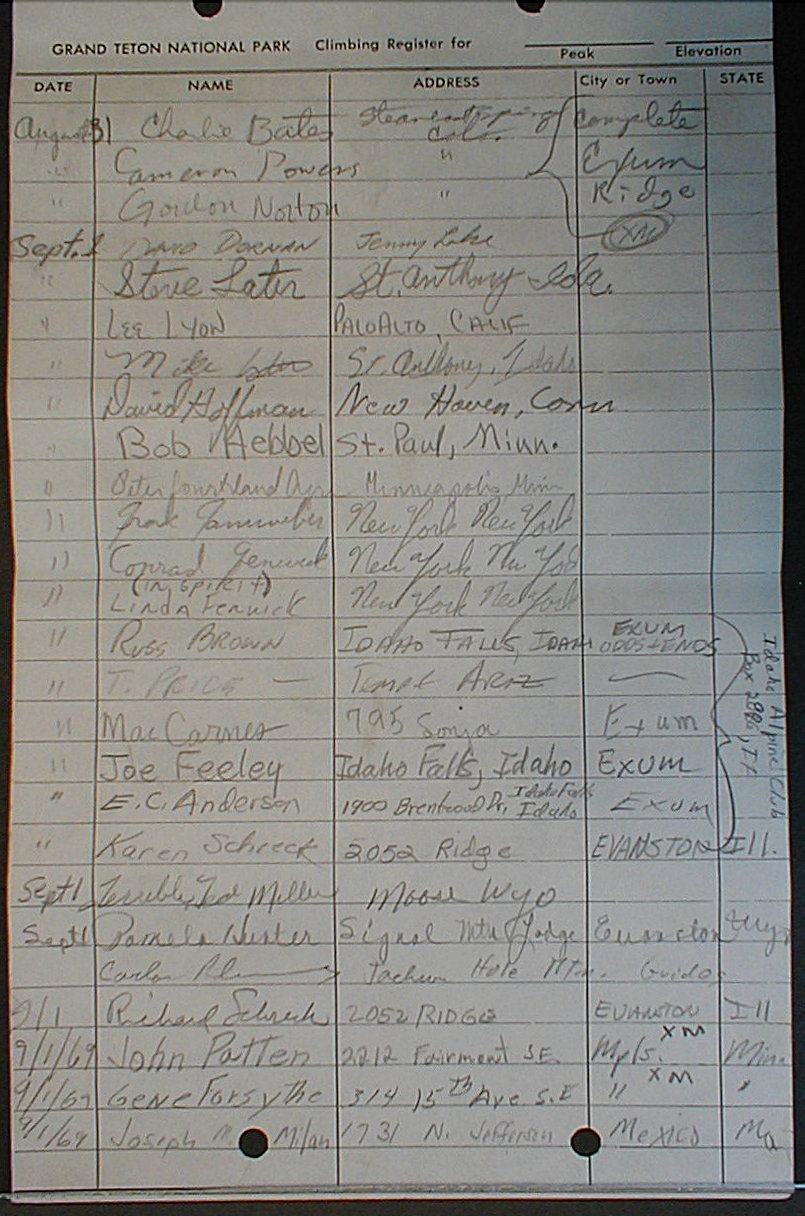 GRAND TETON NATIONAL PARK Climbing Register for
Peak Elevation
DATE NAME ADDRESS City or Town STATE
August 31 Charlie Bates Steamboat Spring complete
Colo.
" Cameron Powers " Exum
" Gordon Norton " Ridge
Sept. 1 David Dornan Jenny Lake XM
" Steve Later St. Anthony Ida.
" LEE LYON PALO ALTO, CALIF
" Mike St. Anthony, Idaho
" David Hoffman New Haven, Conn
" Bob Hebbel St. Paul, Minn.
" Peter Minneapolis Minn
" Frank New York New York
" Conrad Fenwick New York New York
(IN SPIRIT)
" LINDA FENWICK New York New York
" RUSS BROWN IDAHO FALLS, IDAH EXUM
ODDS + ENDS
" T. PRICE — TEMPE ARIZ —
" Mac Carnes 795 Sonja Exum
" Joe Feeley Idaho Falls, Idaho EXUM
" E.C. Anderson 1900 Brentwood Dr. Idaho Falls Idaho Exum
Idaho Alpine Club
Box 2885, IF
" Karen Schreck 2052 Ridge EVANSTON Ill.
Sept 1 Terrible Ted Miller Moose Wyo
Sept 1 Pamela Signal Mtn Lodge Evanston Wyo
Jackson Hole Mtn. Guides
9/1 Richard Schreck 2052 RIDGE EVANSTON Ill
XM
9/1/69 John Patten 2212 Fairmont S.E. Mpls. Minn.
XM
9/1/69 Gene Forsythe 314 15th Ave S.E " "
9/1/69 Joseph M. Milan 1731 N. Jefferson Mexico Mo